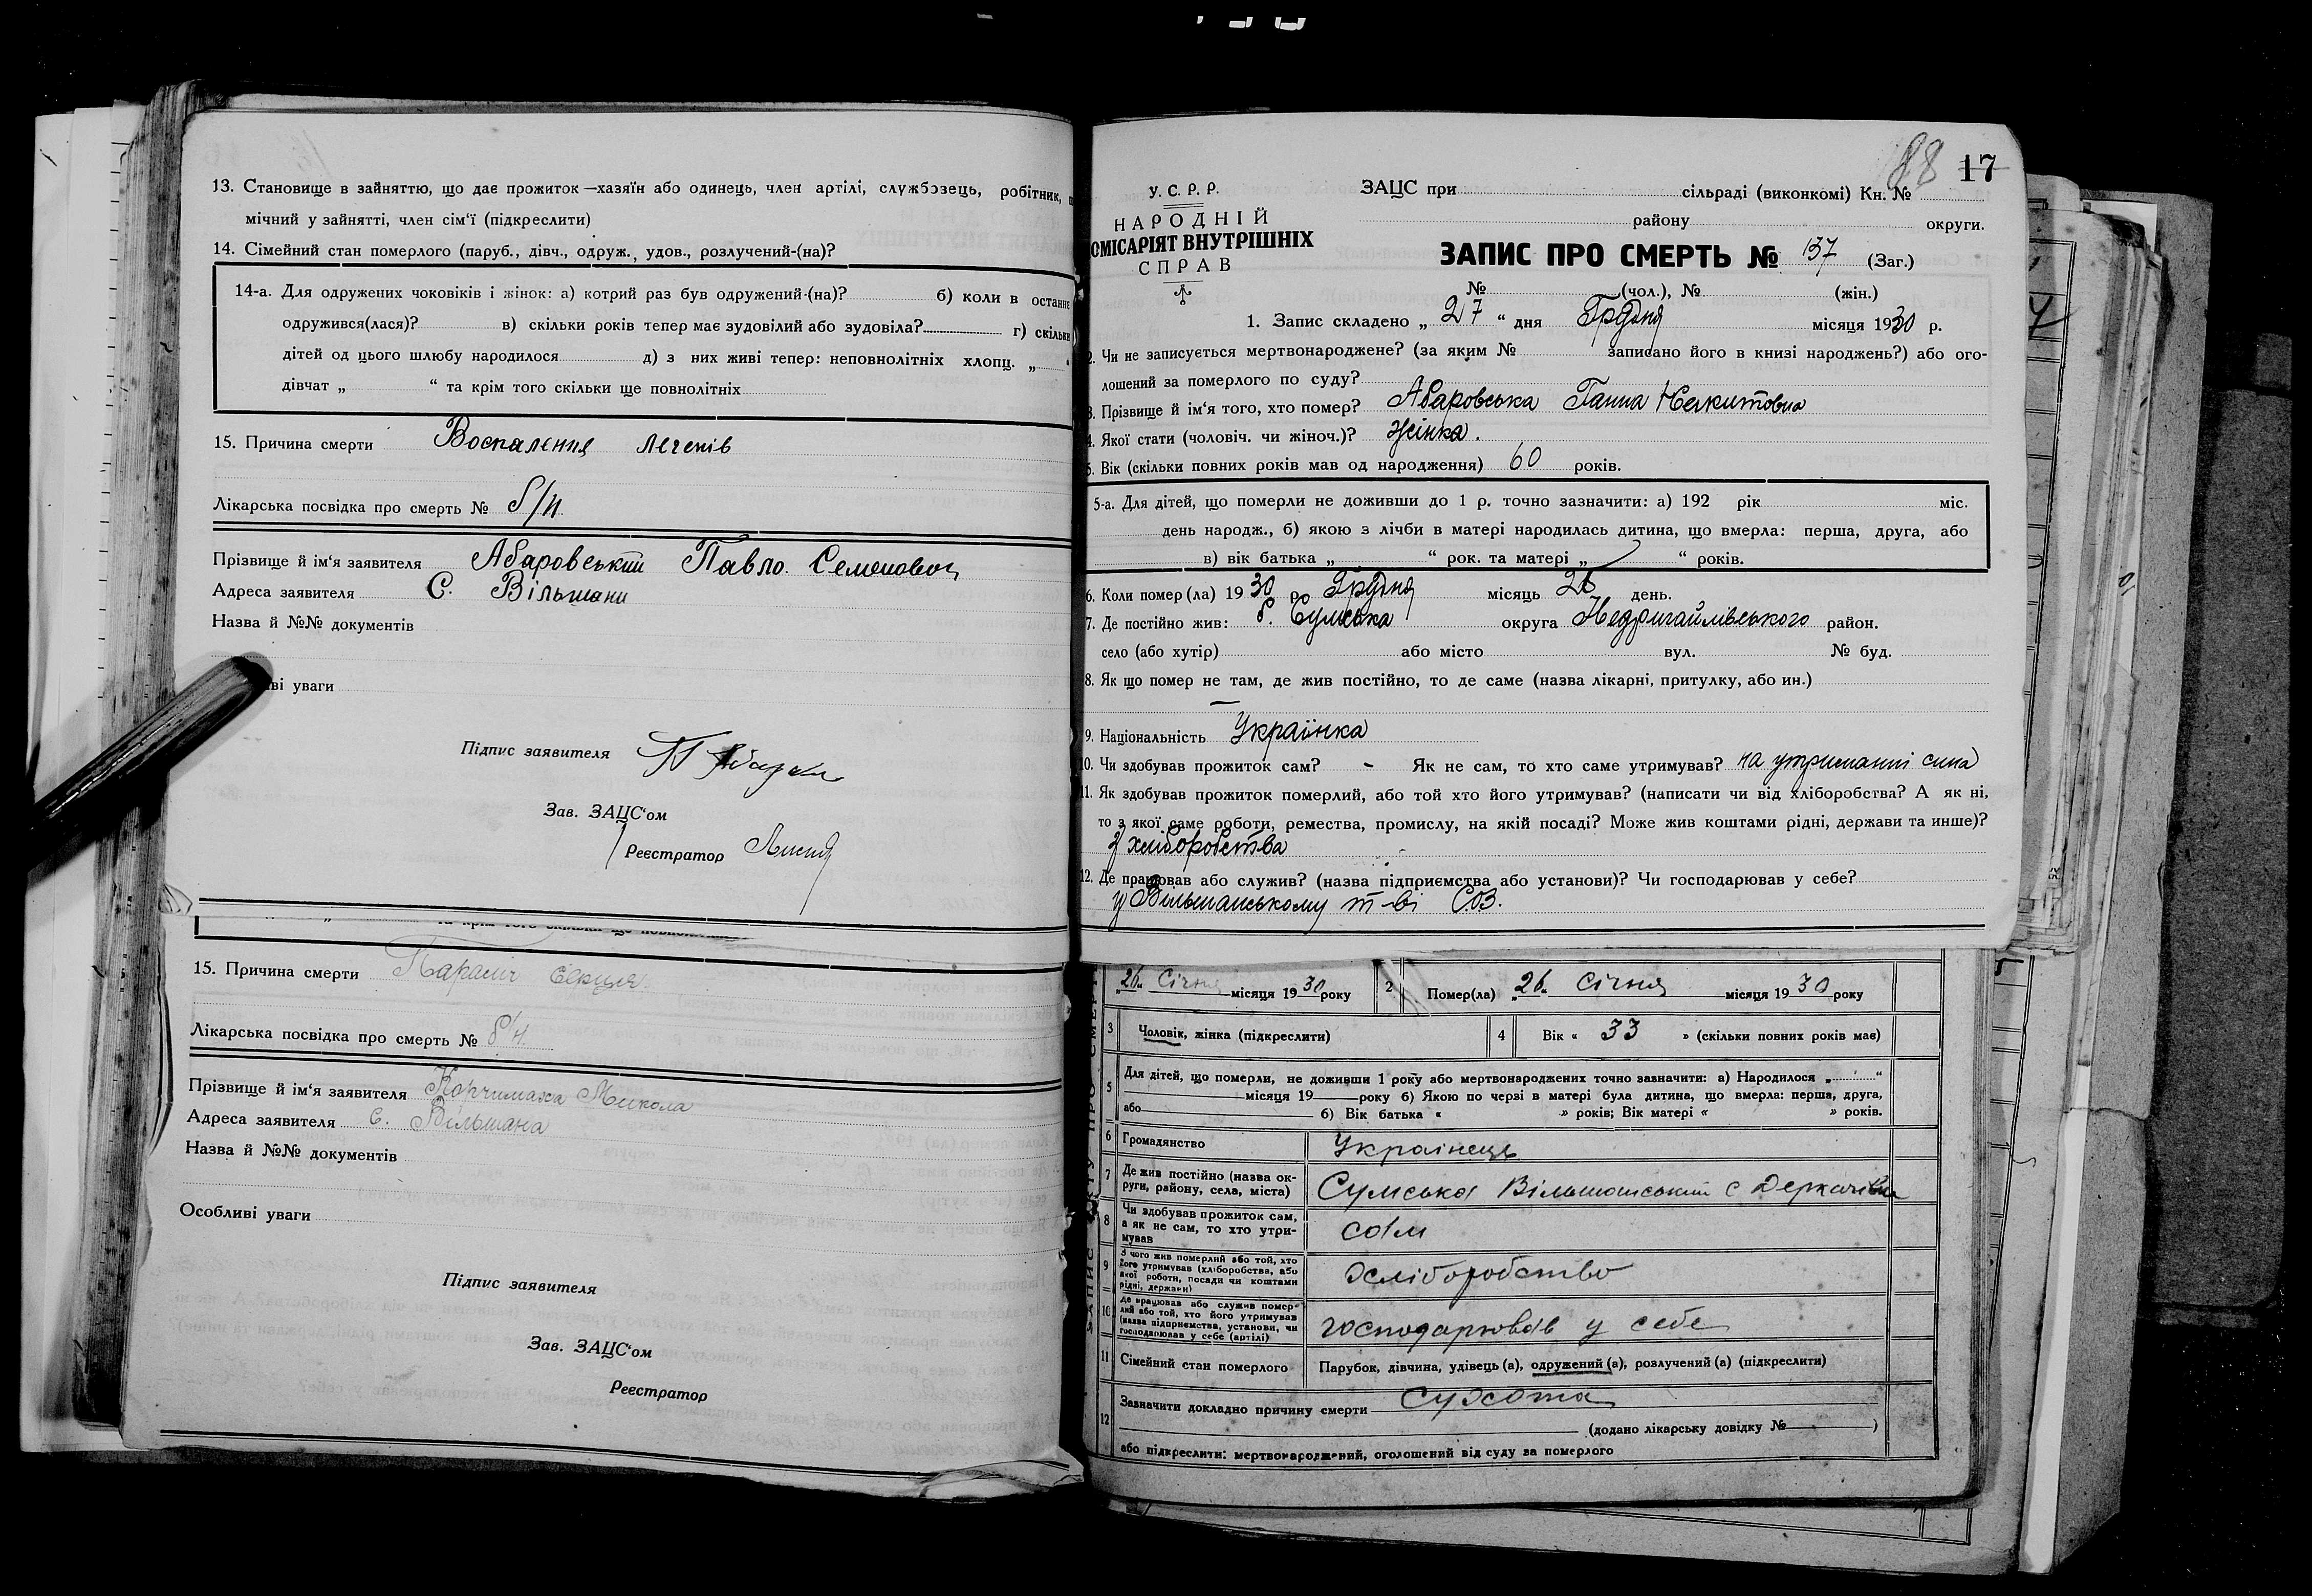 13. Становище в зайняттю, що дає прожиток—хазяїн або одинець, член артілі, службовець, робітник,
мічний у зайнятті, член сім'ї (підкреслити)
14. Сімейний стан померлого (паруб., дівч., одруж., удов., розлучений-(на)?
14-а. Для одружених чоковіків і жінок: а) котрий раз був одружений-(на)? б) коли в останнє
одружився(лася)? в) скільки років тепер має зудовілий або зудовіла? г) скільки
дітей од цього шлюбу народилося д) з них живі тепер: неповнолітніх хлопц. „
дівчат „ “ та крім того скільки ще повнолітніх
15. Причина смерти Воспалення легенів
Лікарська посвідка про смерть № б/н.
Прізвище й ім'я заявителя Абаровський Павло Семенович
Адреса заявителя С. Вільшани
Назва й №№ документів
ві уваги
Підпис заявителя
Зав. ЗАЦС'ом
Реєстратор
15. Причина смерти Параліч серця.
Лікарська посвідка про смерть № б/н.
Прізвище й ім'я заявителя Микола
Адреса заявителя С. Вільшана
Назва й №№ документів
Особливі уваги
Підпис заявителя
Зав. ЗАЦС'ом
Реєстратор
88 17
У. С. Р. Р.
НАРОДНІЙ
ОМІСАРІЯТ ВНУТРІШНІХ
СПРАВ
ЗАЦС при сільраді (виконкомі) Кн. №
району округи.
ЗАПИС ПРО СМЕРТЬ № 137 (Заг.)
№ (чол.), № (жін.)
1. Запис складено „ 27 “ дня Грудня місяця 1930 р.
2. Чи не записується мертвонароджене? (за яким № записано його в книзі народжень?) або ого-
лошений за померлого по суду?
3. Прізвище й ім'я того, хто помер? Абаровська Ганна Никитовна
4. Якої стати (чоловіч. чи жіноч.)? жінка.
5. Вік (скільки повних років мав од народження) 60 років.
5-а. Для дітей, що померли не доживши до 1 р. точно зазначити: а) 192 рік міс.
день народж., б) якою з лічби в матері народилась дитина, що вмерла: перша, друга, або
в) вік батька „ “ рок. та матері „ “ років.
6. Коли помер(ла) 1930 р. Грудня місяць 26 день.
7. Де постійно жив: б. Сумська округа Недригайлівського район.
село (або хутір) або місто вул. № буд.
8. Як що помер не там, де жив постійно, то де саме (назва лікарні, притулку, або ин.)
—
9. Національність Українка
10. Чи здобував прожиток сам? - Як не сам, то хто саме утримував? на утриманні сина
11. Як здобував прожиток померлий, або той хто його утримував? (написати чи від хліборобства? А як ні,
то з якої саме роботи, ремества, промислу, на якій посаді? Може жив коштами рідні, держави та инше)?
З хліборобства
12. Де працював або служив? (назва підприємства або установи)? Чи господарював у себе?
у Вільшанському т-ві СОЗ.
„26“ Січня місяця 1930 року 2 Помер(ла) „26“ Січня місяця 1930 року
3 Чоловік, жінка (підкреслити) 4 Вік « 33 » (скільки повних років має)
5 Для дітей, що померли, не доживши 1 року або мертвонароджених точно зазначити: а) Народилося „ “
місяця 19 року б) Якою по черзі в матері була дитина, що вмерла: перша, друга,
або б) Вік батька « » років; Вік матері « » років.
6 Громадянство Українець
7 Де жив постійно (назва ок-
руги, району, села, міста) Сумська Вільшанський с Деркачівка
8 Чи здобував прожиток сам,
а як не сам, то хто утри-
мував сам
9 З чого жив померлий або той, хто
його утримував (хліборобства, або
якої роботи, посади чи коштами
рідні, держави) хліборобство
10 Де працював або служив помер-
лий або той, хто його утримував
(назва підприємства, установи, чи
господарював у себе (артілі) господарював у себе
11 Сімейний стан померлого Парубок, дівчина, удівець (а), одружений (а), розлучений (а) (підкреслити)
12 Зазначити докладно причину смерти Сухота
(додано лікарську довідку № )
або підкреслити: мертвонароджений, оголошений від суду за померлого